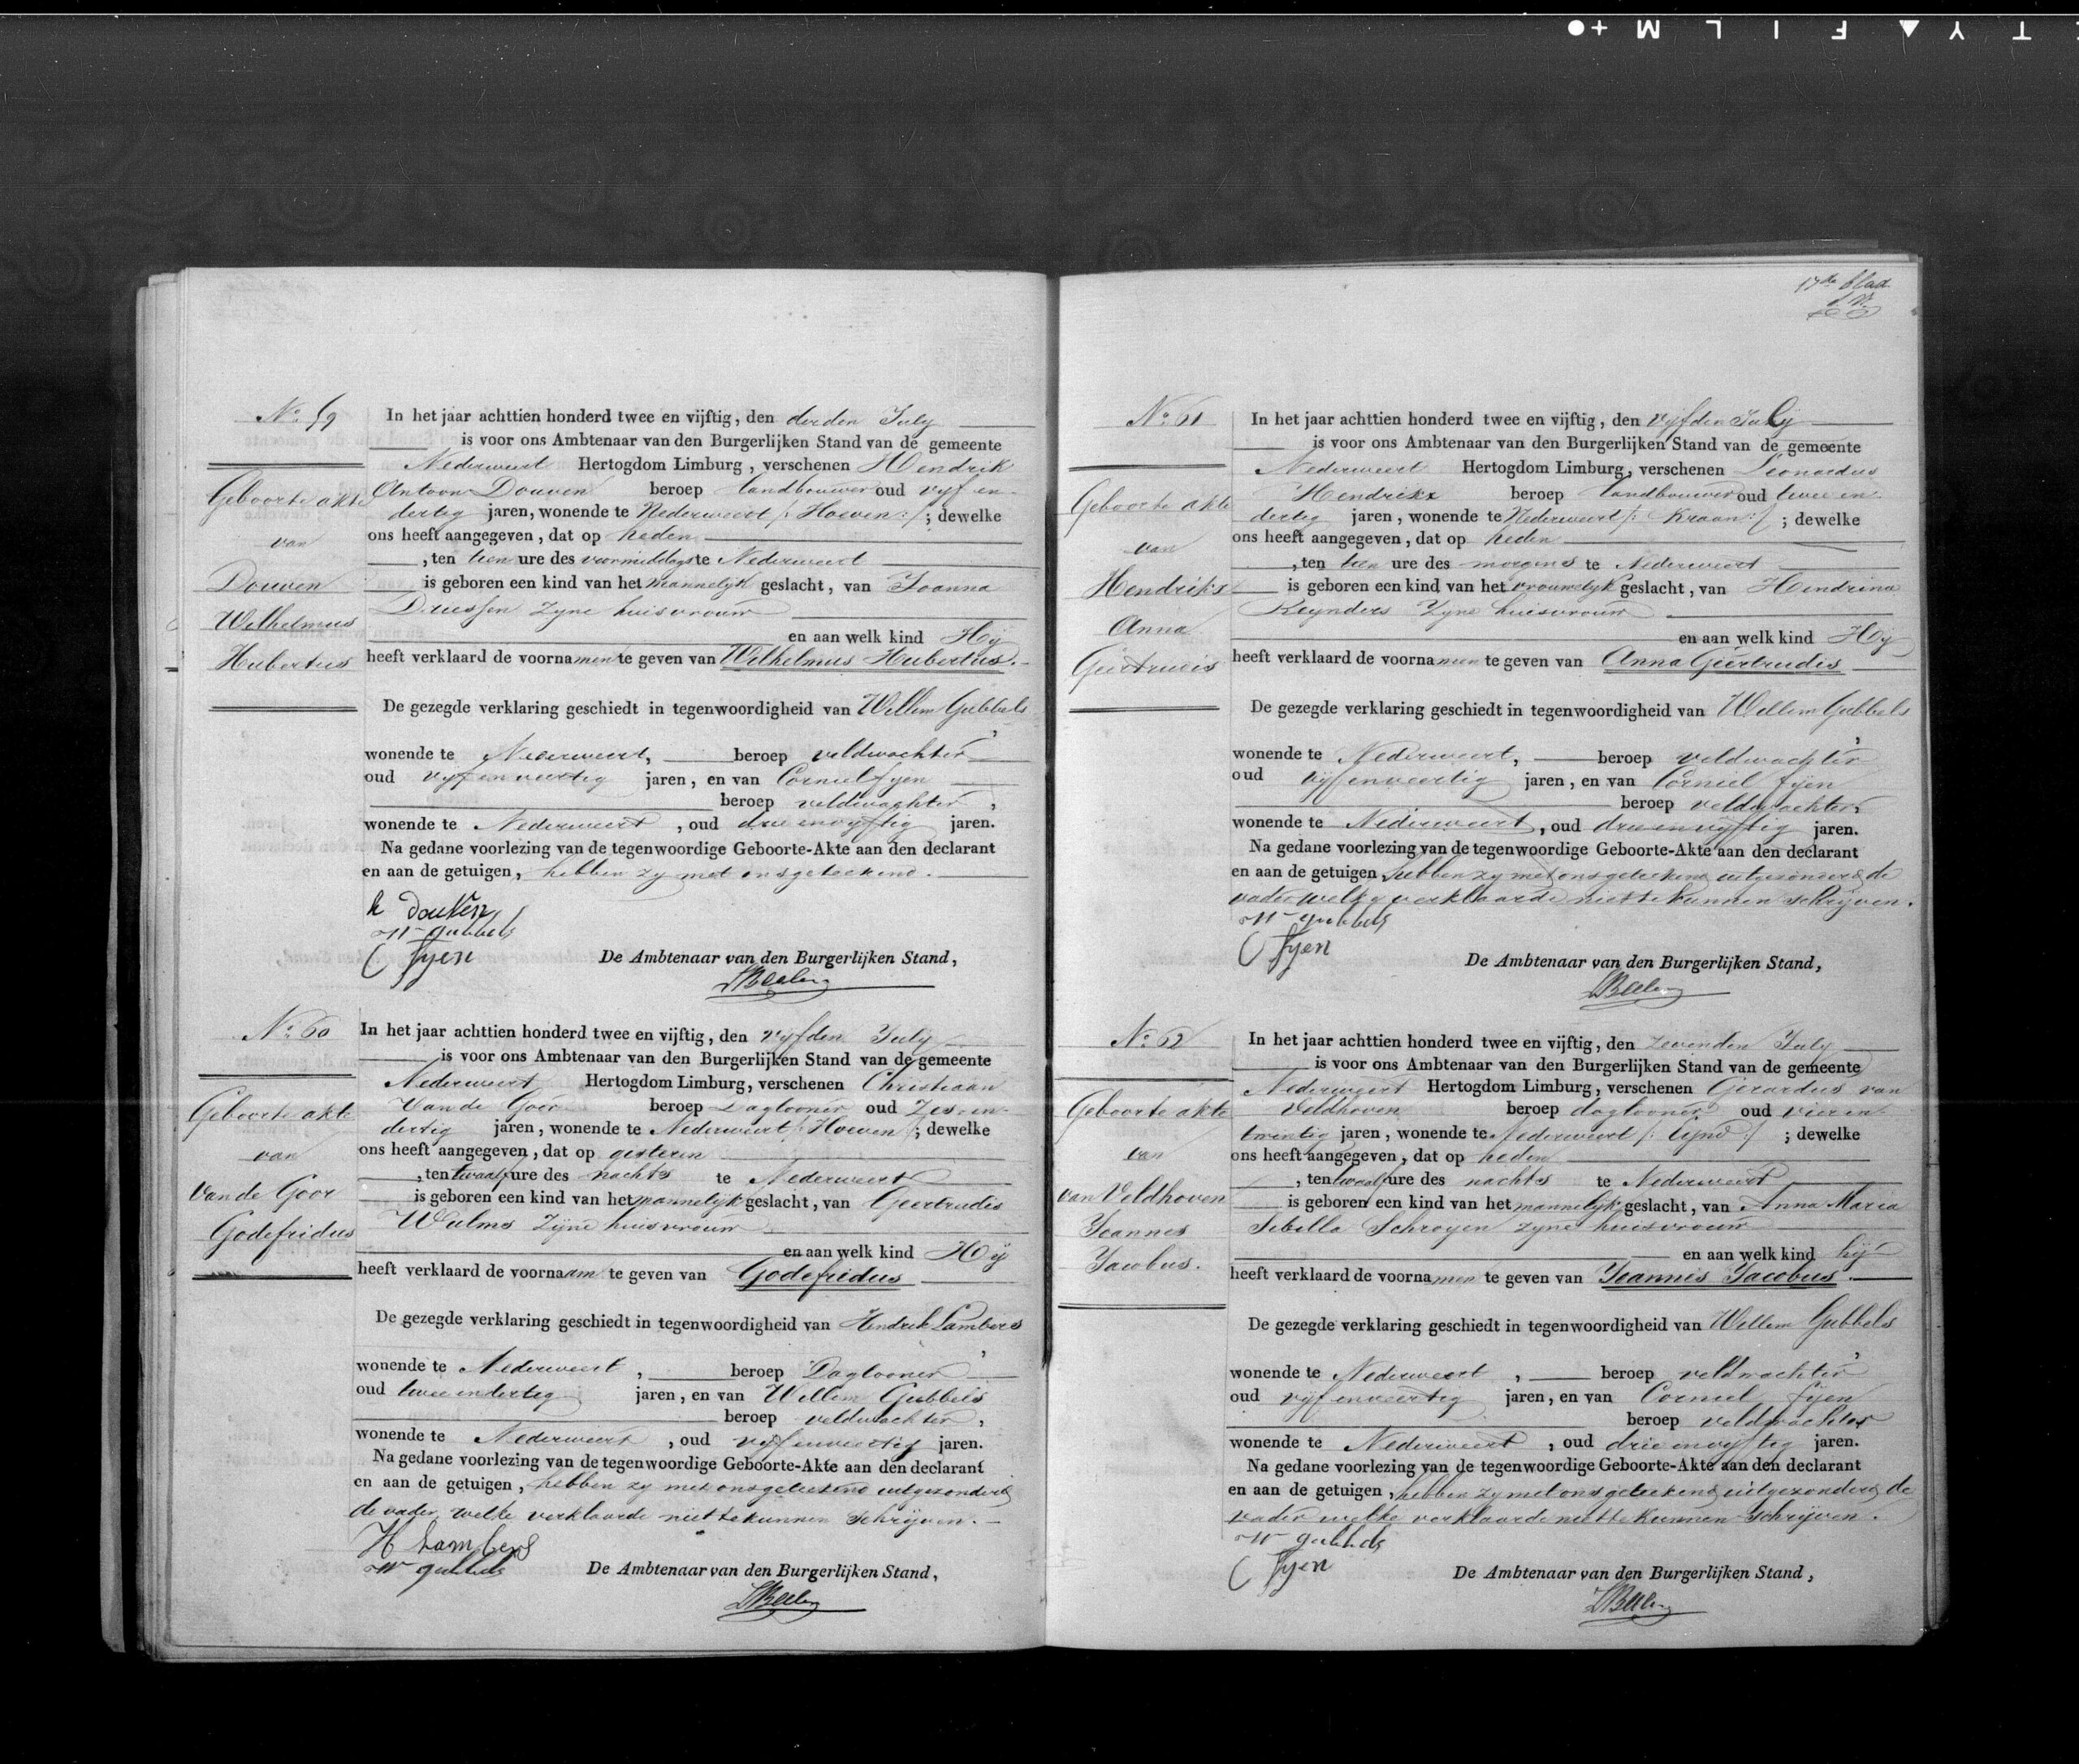 17de blad
No. 59
Geboorte akte
van
Douven
Wilhelmus
Hubertus
In het jaar achttien honderd twee en vijftig, den derden July
is voor ons Ambtenaar van den Burgerlijken Stand van de gemeente
Nederweert Hertogdom Limburg, verschenen Hendrik
Antoon Douven beroep landbouwer oud vyf en
dertig jaren, wonende te Nederweert /: Hoeven :/ ; dewelke
ons heeft aangegeven, dat op heden
, ten tien ure des voormiddags te Nederweert
is geboren een kind van het mannelyk geslacht, van Joanna
Driessen zyne huisvrouw
en aan welk kind Hy
heeft verklaard de voornamen te geven van Wilhelmus Hubertus.
De gezegde verklaring geschiedt in tegenwoordigheid van Willem Gubbels
,
wonende te Nederweert, beroep veldwachter
oud vyf en veertig jaren, en van Corneil fyen
beroep veldwachter,
wonende te Nederweert, oud drie en vyftig jaren.
Na gedane voorlezing van de tegenwoordige Geboorte-Akte aan den declarant
en aan de getuigen, hebben zy met ons geteekend.
h douven
w gubbels
C fyen
De Ambtenaar van den Burgerlijken Stand,
No. 60
Geboorte akte
van
Van de Goor
Godefridus
In het jaar achttien honderd twee en vijftig, den vyfden July
is voor ons Ambtenaar van den Burgerlijken Stand van de gemeente
Nederweert Hertogdom Limburg, verschenen Christiaan
Van de Goor beroep Daglooner oud Zes en
dertig jaren, wonende te Nederweert /: Hoeven :/ ; dewelke
ons heeft aangegeven, dat op gisteren
, ten twaalf ure des nachts te Nederweert
is geboren een kind van het mannelyk geslacht, van Geertrudis
Wulms zyne huisvrouw
en aan welk kind Hy
heeft verklaard de voornaam te geven van Godefridus
De gezegde verklaring geschiedt in tegenwoordigheid van Hendrik Lambers
,
wonende te Nederweert, beroep Daglooner
oud twee en dertig jaren, en van Willem Gubbels
beroep veldwachter,
wonende te Nederweert, oud vyf en veertig jaren.
Na gedane voorlezing van de tegenwoordige Geboorte-Akte aan den declarant
en aan de getuigen, hebben zy met ons geteekend uitgezonderd
de vader, welke verklaarde niet te kunnen schryven.
H Lambers
w gubbels
De Ambtenaar van den Burgerlijken Stand,
No. 61
Geboorte akte
van
Hendriks
Anna
Geertrudis
In het jaar achttien honderd twee en vijftig, den vyfden July
is voor ons Ambtenaar van den Burgerlijken Stand van de gemeente
Nederweert Hertogdom Limburg, verschenen Leonardus
Hendrikx beroep landbouwer oud twee en
dertig jaren, wonende te Nederweert /: Kraan :/ ; dewelke
ons heeft aangegeven, dat op heden
, ten tien ure des morgens te Nederweert
is geboren een kind van het vrouwelyk geslacht, van Hendrina
Reynders zyne huisvrouw
en aan welk kind Hy
heeft verklaard de voornamen te geven van Anna Geertrudis
De gezegde verklaring geschiedt in tegenwoordigheid van Willem Gubbels
,
wonende te Nederweert, beroep veldwachter
oud vyf en veertig jaren, en van Corneil fyen
beroep veldwachter,
wonende te Nederweert, oud drie en vyftig jaren.
Na gedane voorlezing van de tegenwoordige Geboorte-Akte aan den declarant
en aan de getuigen, hebben zy met ons geteekend uitgezonderd de
vader welke verklaarde niet te kunnen schryven.
w gubbels
C fyen
De Ambtenaar van den Burgerlijken Stand,
No. 62
Geboorte akte
van
van Veldhoven
Joannes
Jacobus.
In het jaar achttien honderd twee en vijftig, den zevenden July
is voor ons Ambtenaar van den Burgerlijken Stand van de gemeente
Nederweert Hertogdom Limburg, verschenen Gerardus van
Veldhoven beroep daglooner oud vier en
twintig jaren, wonende te Nederweert /: Eynd :/ ; dewelke
ons heeft aangegeven, dat op heden
, ten twaalf ure des nachts te Nederweert
is geboren een kind van het mannelyk geslacht, van Anna Maria
Sibilla Schroyen zyne huisvrouw
en aan welk kind hy
heeft verklaard de voornamen te geven van Joannes Jacobus.
De gezegde verklaring geschiedt in tegenwoordigheid van Willem Gubbels
,
wonende te Nederweert, beroep veldwachter
oud vyf en veertig jaren, en van Corneil fyen
beroep veldwachter
wonende te Nederweert, oud drie en vyftig jaren.
Na gedane voorlezing van de tegenwoordige Geboorte-Akte aan den declarant
en aan de getuigen, hebben zy met ons geteekend uitgezonderd de
vader welke verklaarde niet te kunnen schryven.
w gubbels
C fyen
De Ambtenaar van den Burgerlijken Stand,